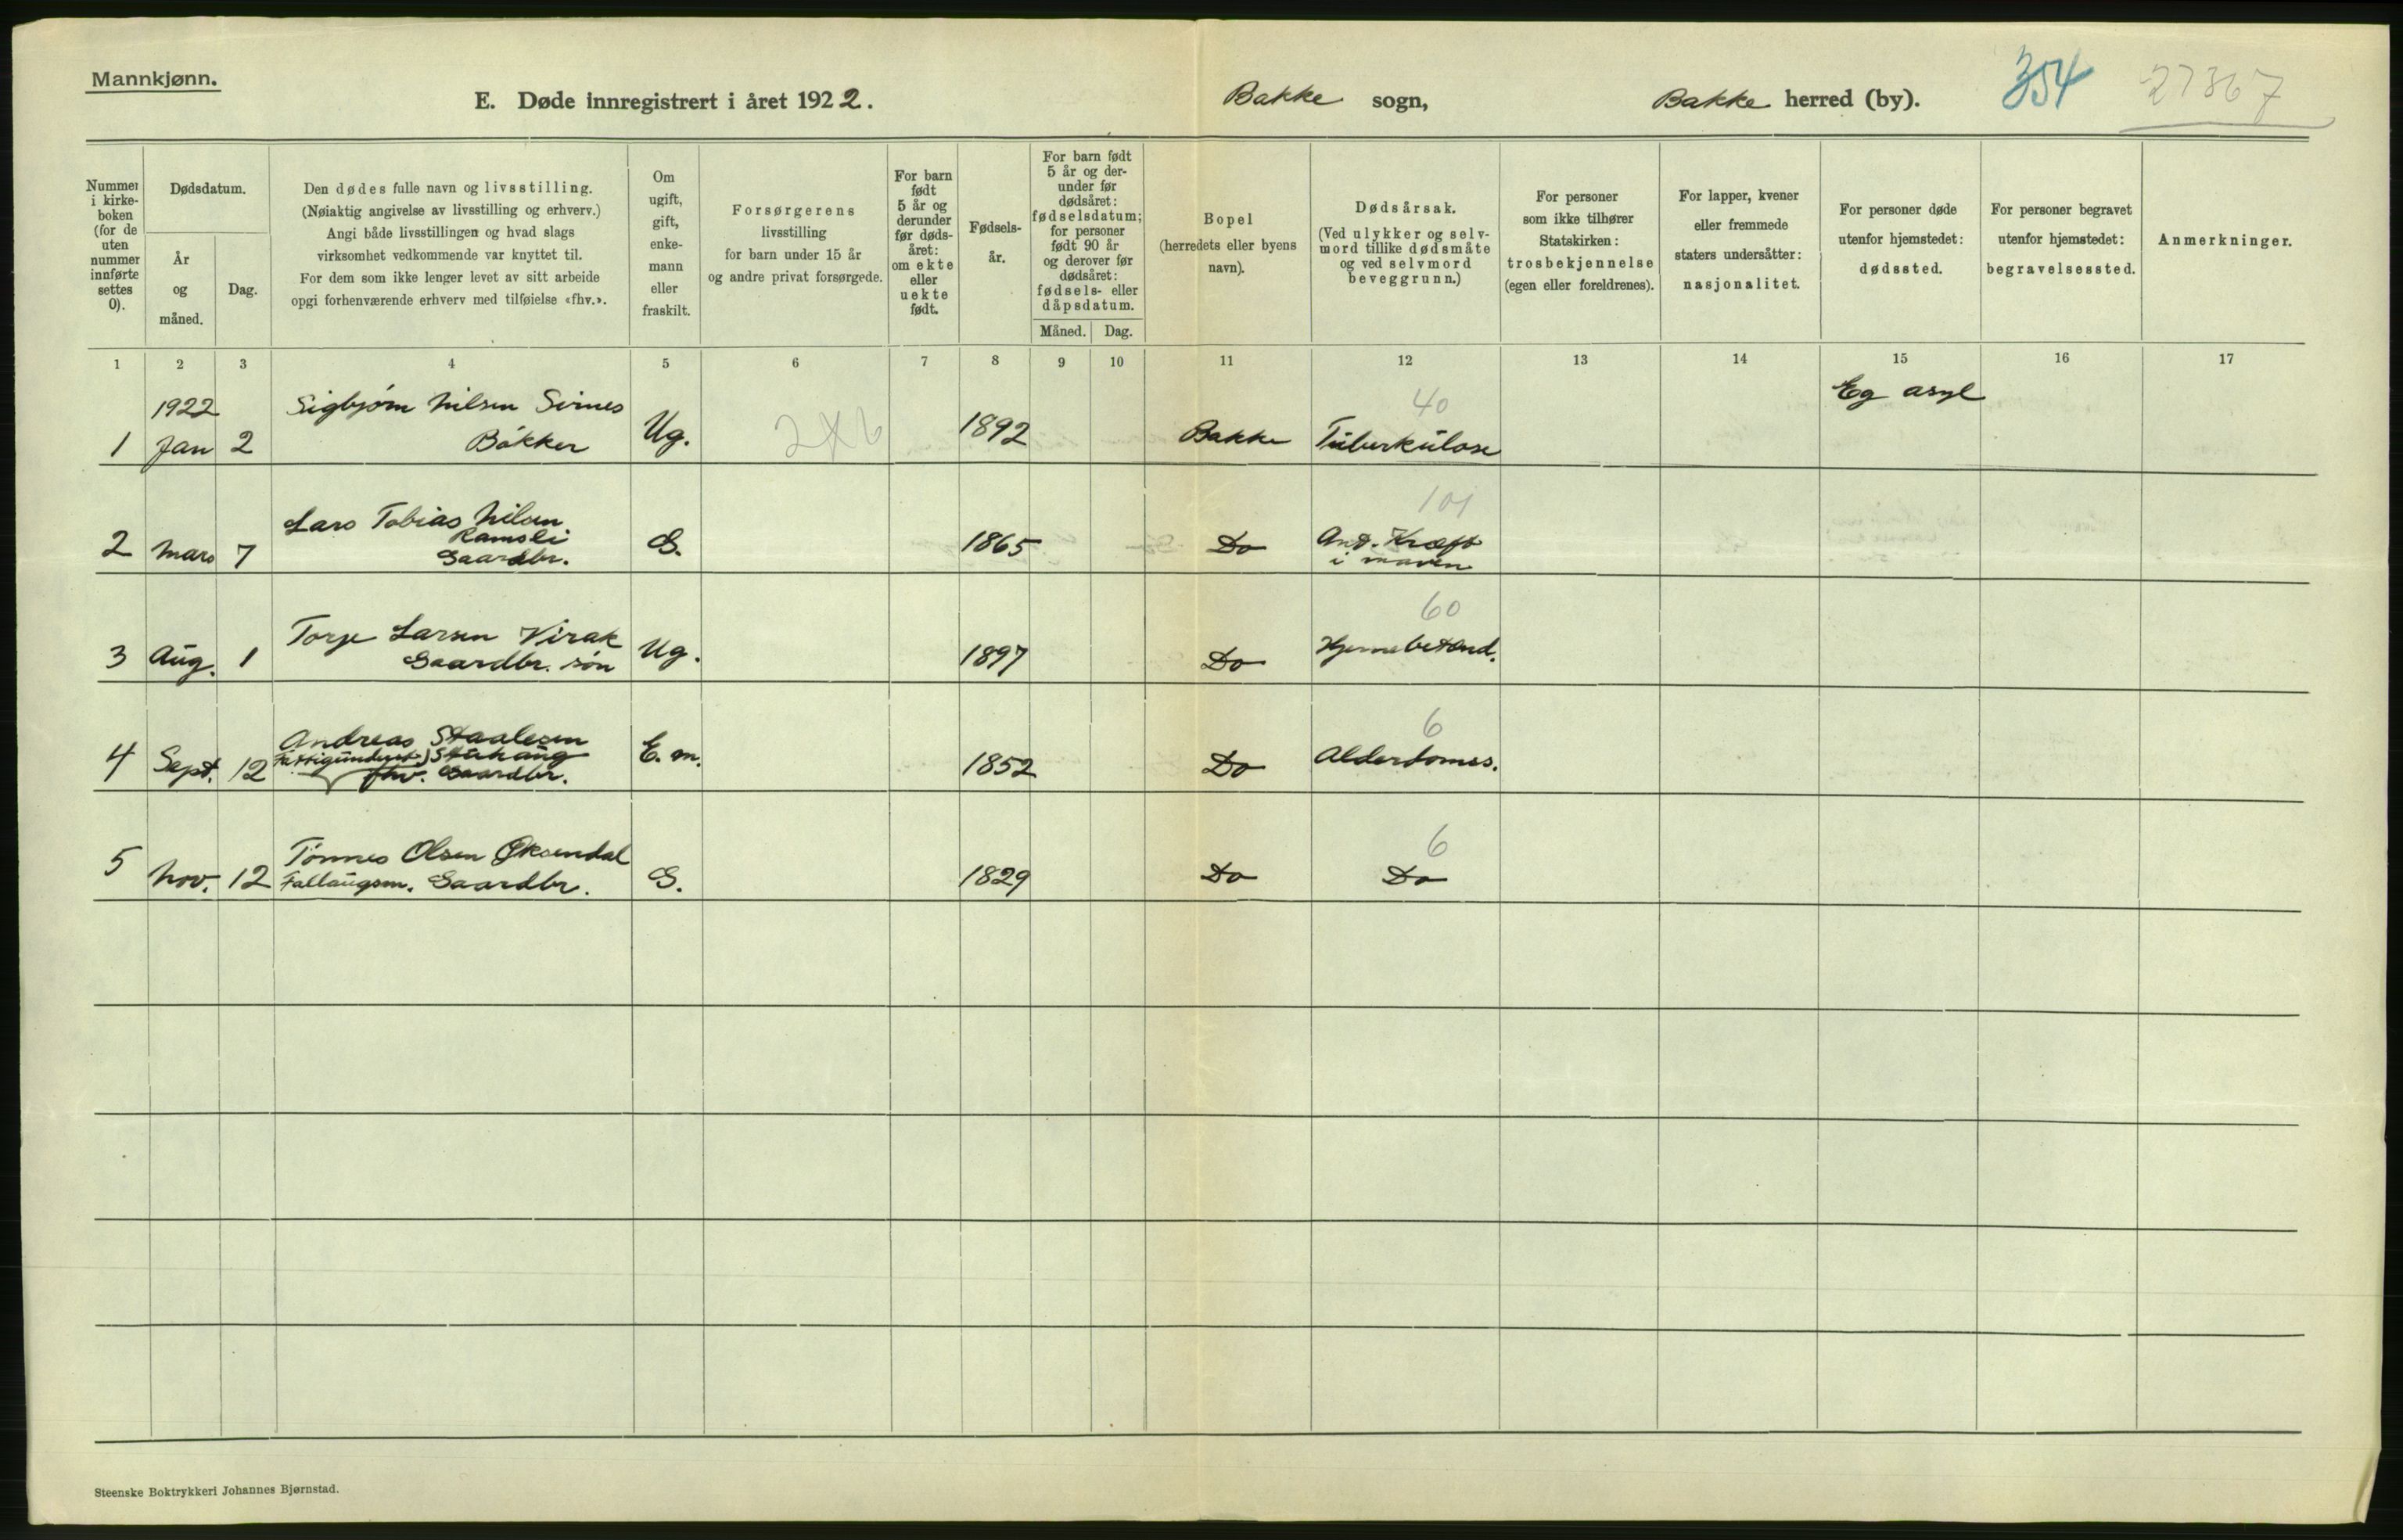 Mannkjønn.
E. Døde innregistrert i året 1922.
Bakke sogn,
Bakke herred (by).
354
27367
Nummer i kirke-boken (for de uten nummer innførte settes 0).
Dødsdatum.
År og måned.
Dag.
Den dødes fulle navn og livsstilling.
(Nøiaktig angivelse av livsstilling og erhverv.)
Angi både livsstillingen og hvad slags
virksomhet vedkommende var knyttet til.
For dem som ikke lenger levet av sitt arbeide
opgi forhenværende erhverv med tilføielse «fhv.».
Om ugift, gift, enke-mann eller fraskilt.
Forsørgerens
livsstilling
for barn under 15 år
og andre privat forsørgede.
For barn født 5 år og derunder før døds-året: om ekte eller uekte født.
Fødsels-år.
For barn født 5 år og der-under før dødsåret: fødselsdatum; for personer født 90 år og derover før dødsåret: fødsels- eller dåpsdatum.
Måned.
Dag.
Bopel
(herredets eller byens navn).
Dødsårsak.
(Ved ulykker og selv-mord tillike dødsmåte og ved selvmord beveggrunn.)
For personer som ikke tilhører Statskirken: trosbekjennelse (egen eller foreldrenes).
For lapper, kvener eller fremmede staters undersåtter: nasjonalitet.
For personer døde utenfor hjemstedet: dødssted.
For personer begravet utenfor hjemstedet: begravelsessted.
Anmerkninger.
1 2 3 4 5 6 7 8 9 10 11 12 13 14 15 16 17
1922 Sigbjørn Nilsen Sirnes 40 Eg asyl
1 Jan 2 Bakker Ug. 1892 Bakke Tuberkulose
101
Lars Tobias Nilsen
Ramsli
2 Mars 7 Gaardbr. G. 1865 Do And. Kræft
i maven
60
Torje Larsen Virak
3 Aug. 1 Gaardbr. søn Ug. 1897 Do Hjernebetænd.
6
Andreas Staalesen
4 Sept. 12 fhv. Gaardbr. E. m. 1852 Do Alderdoms.
6
Tønnes Olsen Øksendal
5 Nov. 12 Gaardbr. G. 1829 Do Do
Steenske Boktrykkeri Johannes Bjørnstad.